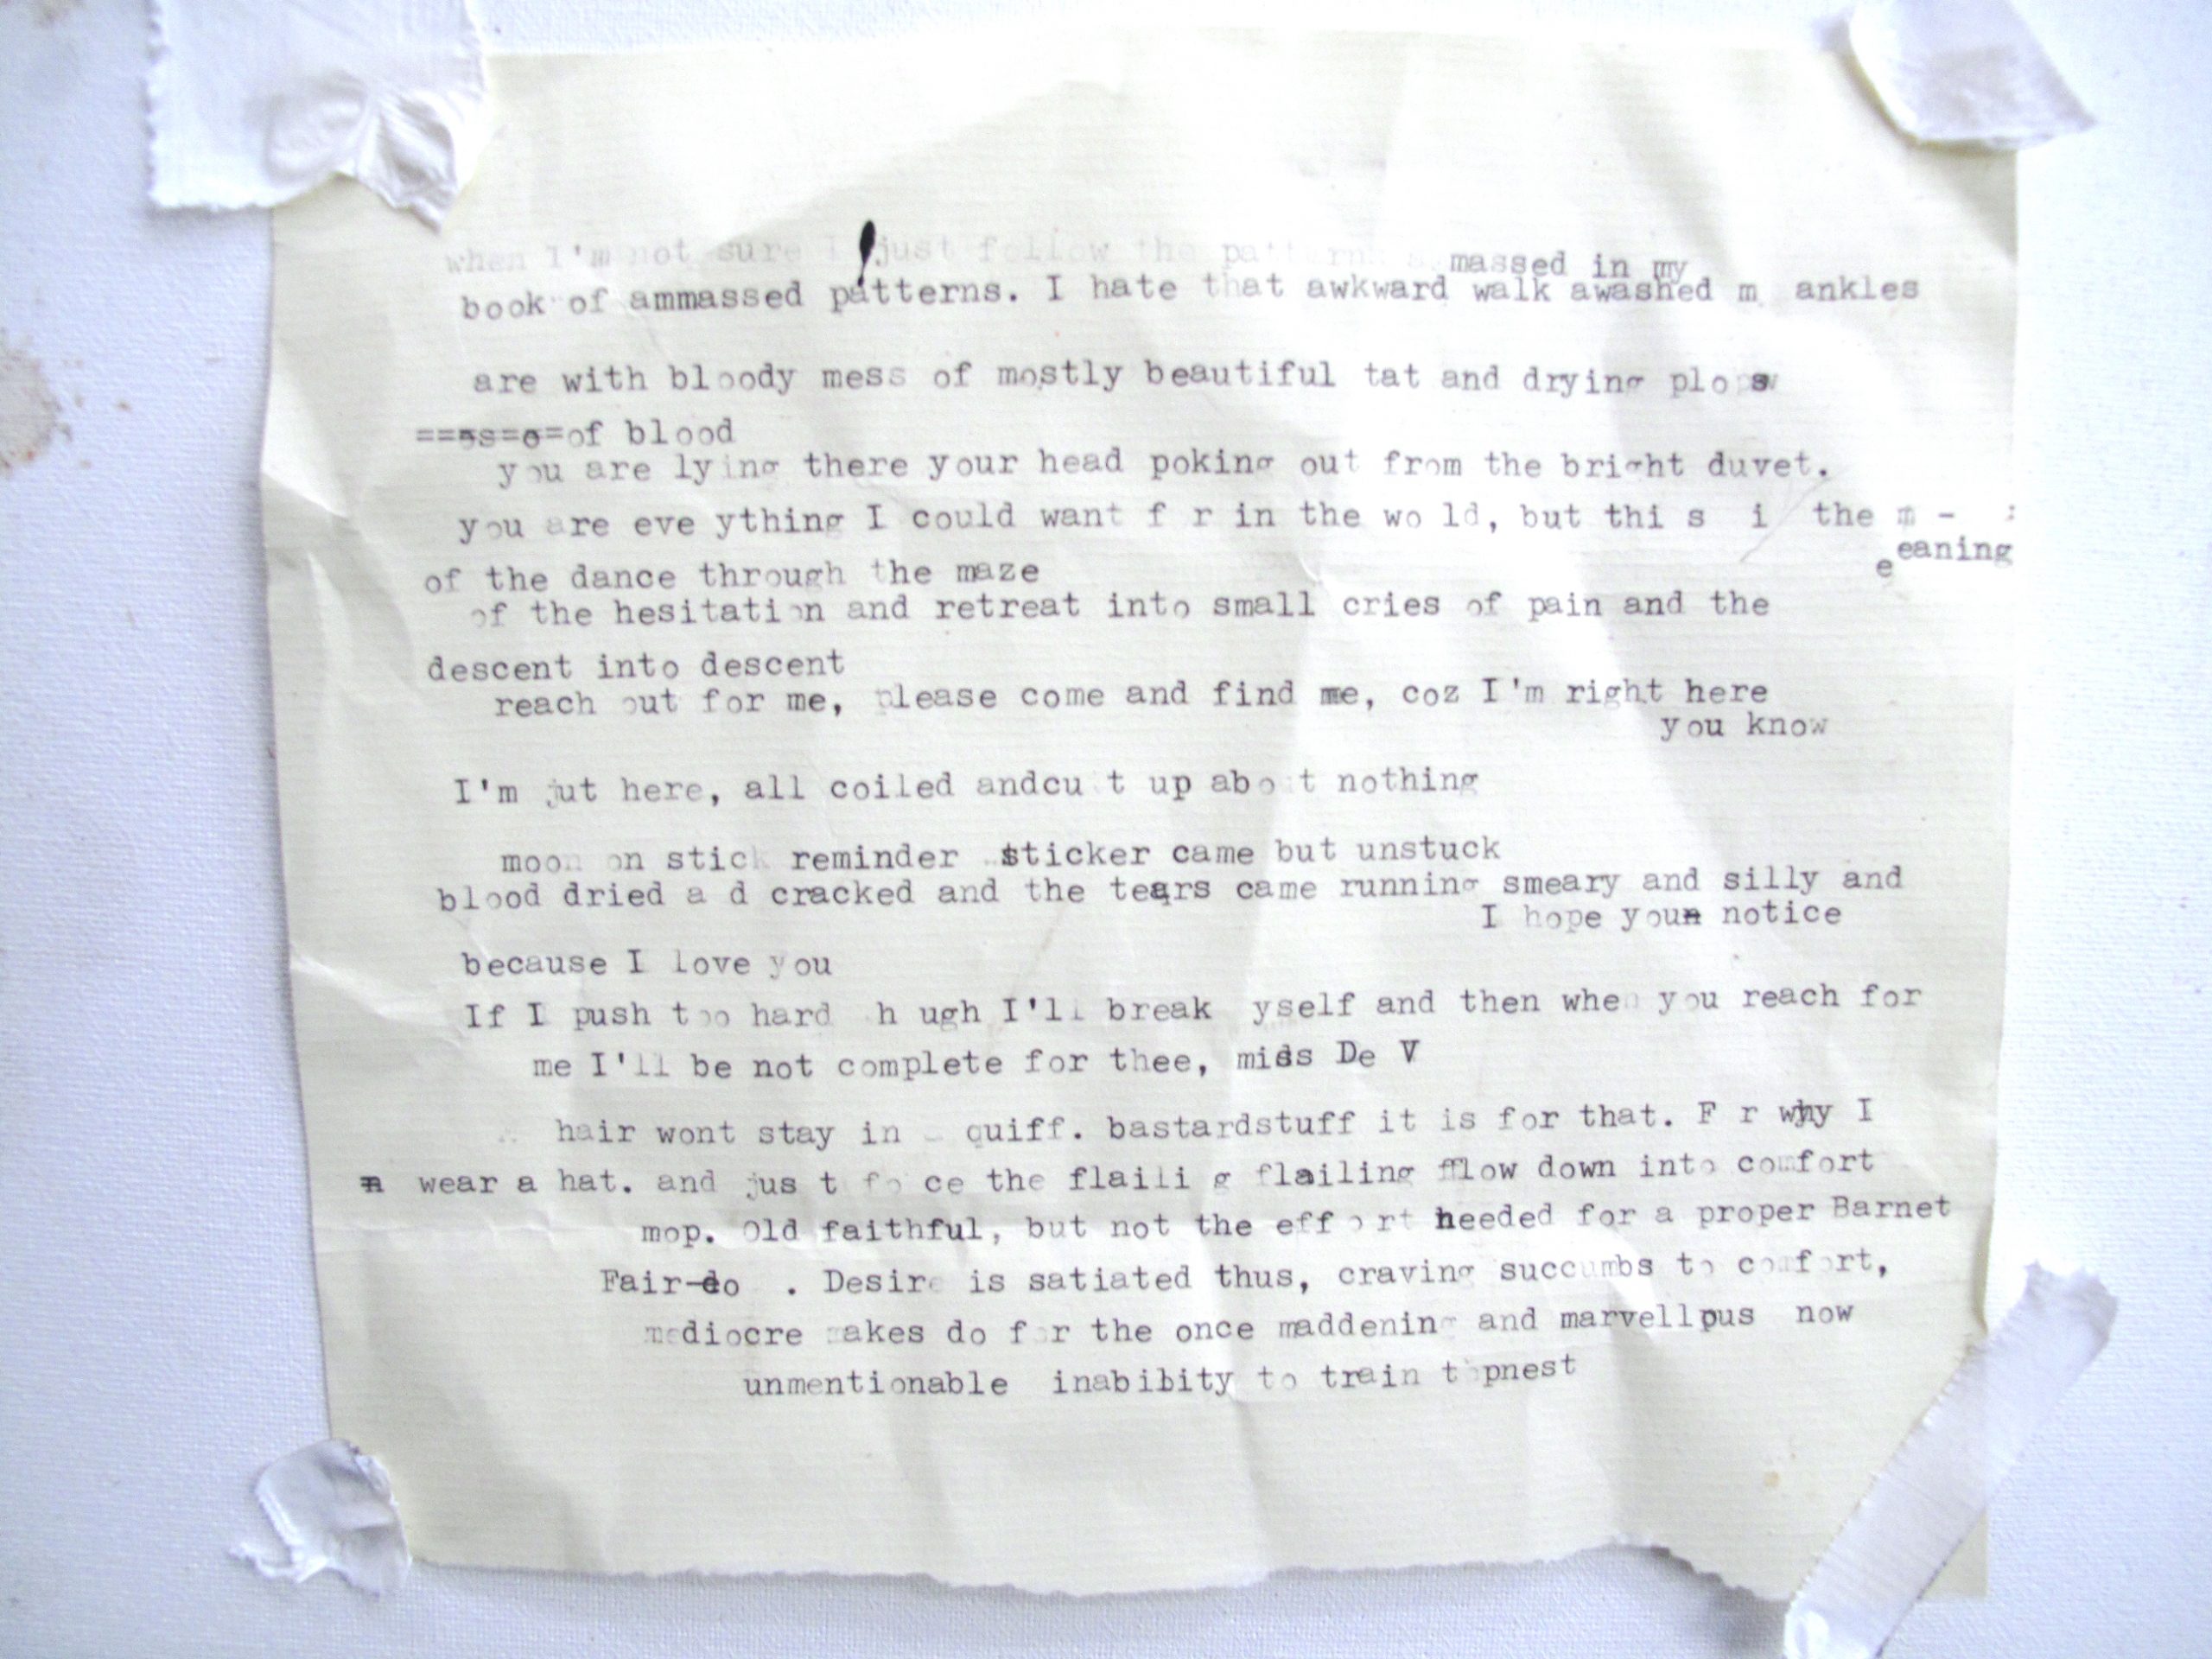 when I'm not sure I just follow the pattern massed in my
book of ammassed patterns. I hate that awkward walk awashed m ankles
are with bloody mess of mostly beautiful tat and drying plops
==ss=o=of blood
you are lying there your head poking out from the bright duvet.
you are eve ything I could want f r in the wo ld, but thi s i the m -
eeaning
of the dance through the maze
of the hesitation and retreat into small cries of pain and the
descent into descent
reach out for me, please come and find me, coz I'm right here
you know
I'm jut here, all coiled andcu t up abo t nothing
moon on stick reminder sticker came but unstuck
blood dried a d cracked and the tears came running smeary and silly and
I hope you notice
because I love you
If I push too hard h ugh I'll break yself and then when you reach for
me I'll be not complete for thee, miss De V
hair wont stay in quiff. bastardstuff it is for that. F r why I
wear a hat. and jus t fo ce the flaili g flailing flow down into comfort
mop. Old faithful, but not the effort needed for a proper Barnet
Fair-do . Desire is satiated thus, craving succumbs to comfort,
mediocre makes do for the once maddening and marvellpus now
unmentionable inability to train topnest